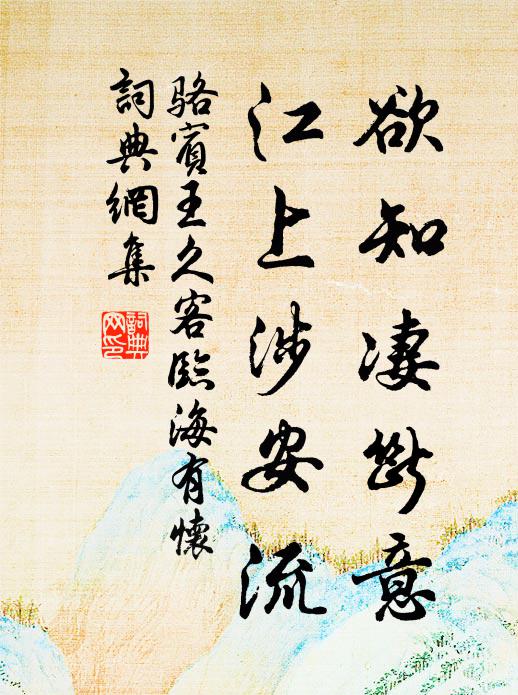 欲知凄斷意
江上涉安流
駱賓王久客臨海有懷
詞典網集
詞典
网印